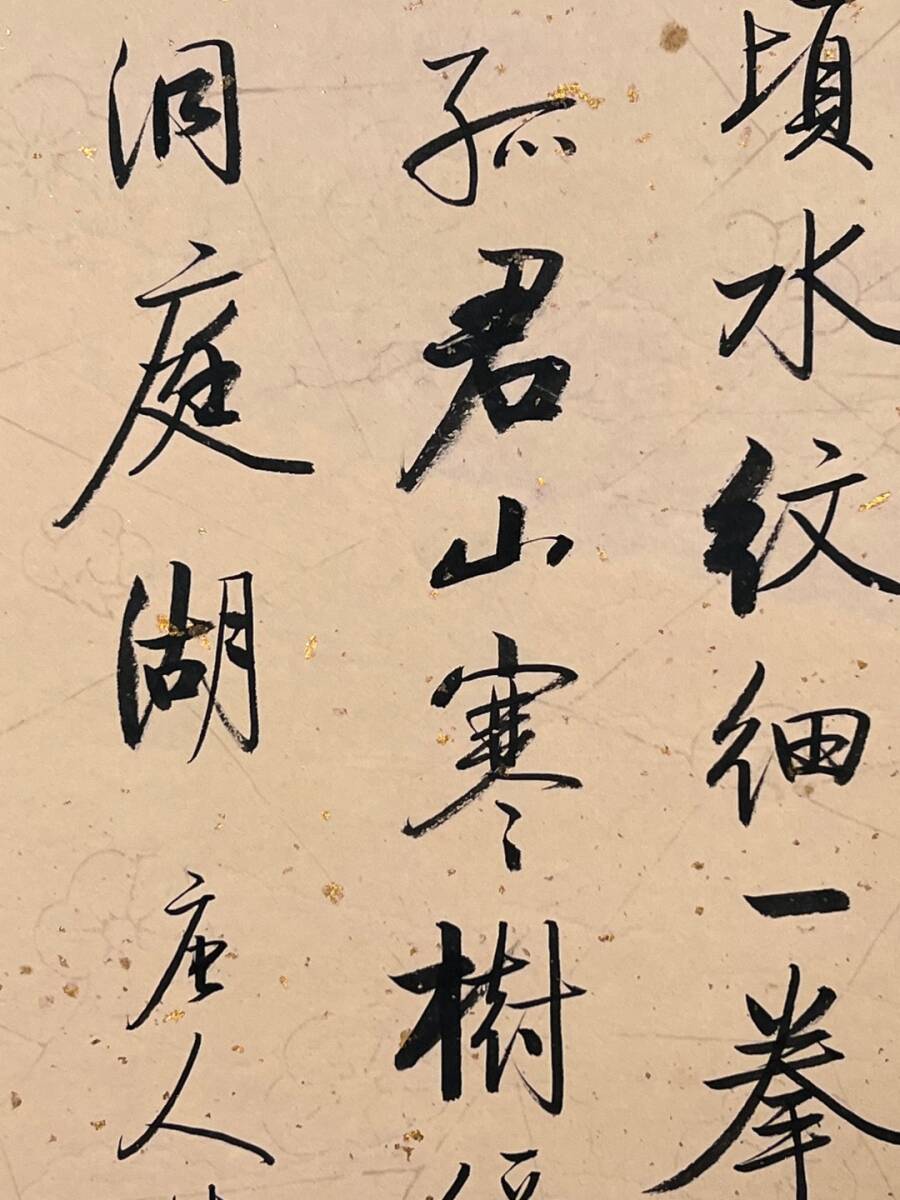 頃水紋細一拳
孤君山寒樹
洞庭湖 唐人